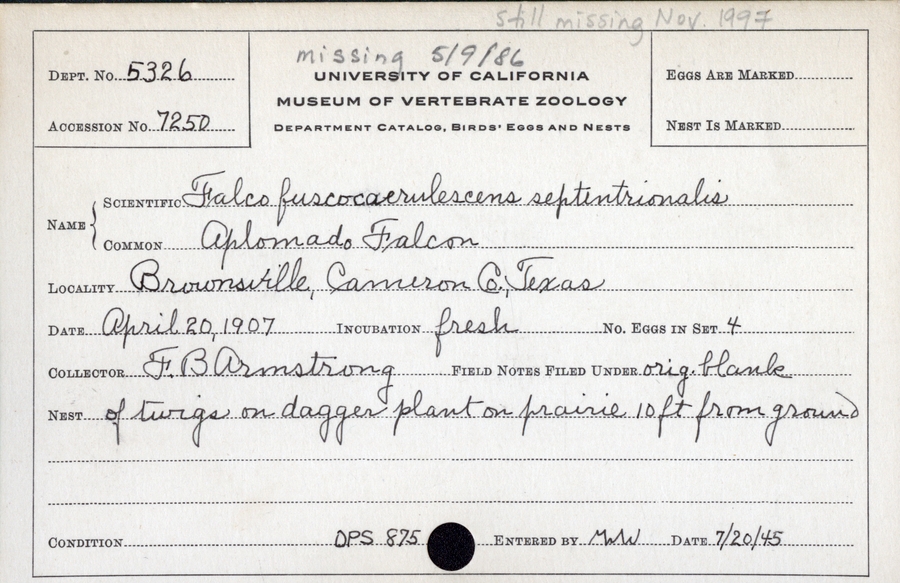 still missing Nov. 1997
missing 5/9/86
DEPT. No. 5326
UNIVERSITY OF CALIFORNIA
EGGS ARE MARKED
MUSEUM OF VERTEBRATE ZOOLOGY
ACCESSION No. 7250
DEPARTMENT CATALOG, BIRDS' EGGS AND NESTS
NEST IS MARKED
NAME
SCIENTIFIC Falco fuscocaerulescens septentrionalis
COMMON Aplomado Falcon
LOCALITY Brownsville, Cameron Co., Texas
DATE April 20, 1907 INCUBATION fresh No. EGGS IN SET 4
COLLECTOR F. B Armstrong FIELD NOTES FILED UNDER orig. blank
NEST of twigs on dagger plant on prairie 10 ft from ground
CONDITION OPS 875 ENTERED BY DATE 7/20/45